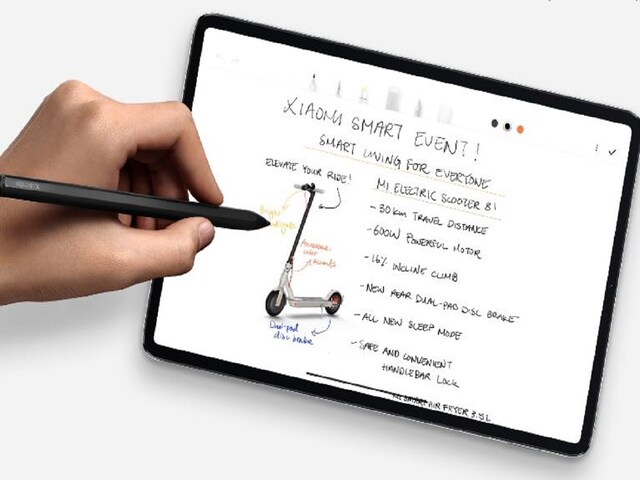 XIAOMI SMART EVENT!!
SMART LIVING FOR EVERYONE
ELEVATE YOUR RIDE!
MI ELECTRIC SCOOTER
- 30 KM TRAVEL DISTANCE
- 600W POWERFUL MOTOR
- 16% INCLINE CLIMB
- NEW REAR DUAL-PAD DISC BRAKE
- ALL NEW SLEEP MODE
- SAFE AND CONVENIENT
HANDLEBAR LOCK
Dual-pad
disc brake
MI SMART AIR FRYER 3.5L